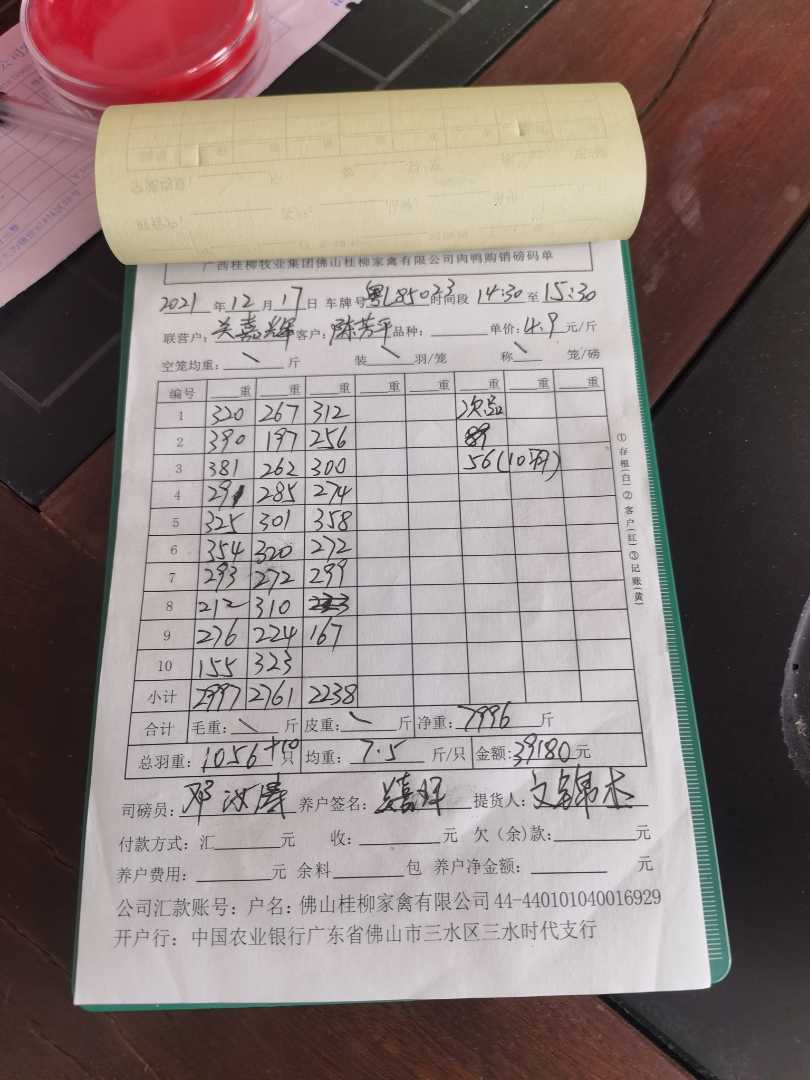 广西桂柳牧业集团佛山桂柳家禽有限公司肉鸭购销磅码单
2021年12月17日 车牌号粤L85023时间段 14:30至15:30
联营户:关嘉辉 客户:陈芳平 品种: 单价:4.9元/斤
空笼均重:\斤 装\羽/笼 称\笼/磅
编号 重 重 重 重 重 重 重 重
1 320 267 312 次品
2 390 197 256
3 381 262 300 56(10羽)
4 291 285 274
5 325 301 358
6 354 320 272
7 293 272 299
8 212 310
9 276 224 167
10 155 323
小计 2997 2761 2238
合计 毛重:\斤 皮重:\斤 净重:7996斤
总羽重:1056+10只 均重:7.5斤/只 金额:39180元
司磅员: 养户签名: 提货人:
付款方式:汇 元 收: 元 欠(余)款: 元
养户费用: 元 余料 包 养户净金额: 元
公司汇款账号:户名:佛山桂柳家禽有限公司 44-440101040016929
开户行:中国农业银行广东省佛山市三水区三水时代支行
①存根(白)②客户(红)③记账(黄)